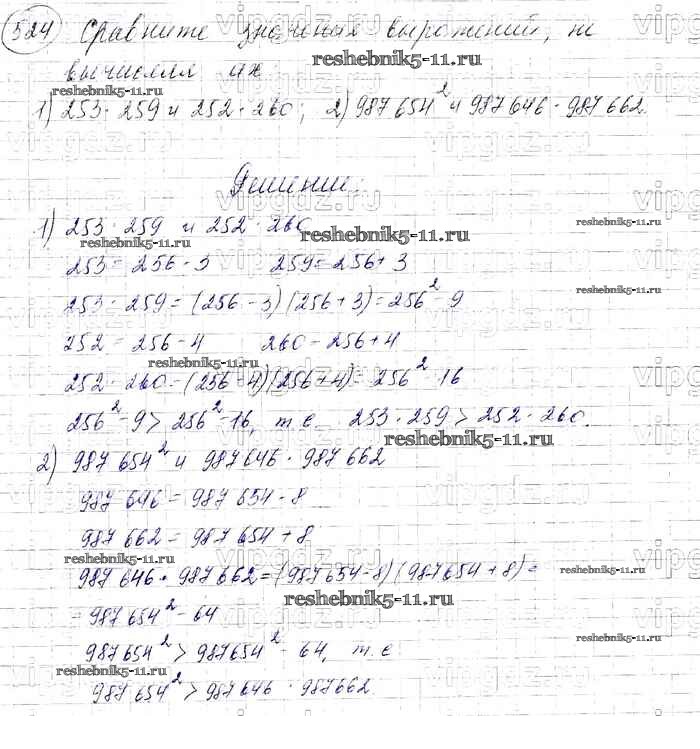 524 Сравните значения выражений, не
вычисляя их
1) 253 · 259 и 252 · 260; 2) 987 654² и 987 646 · 987 662.
Решение:
1) 253 · 259 и 252 · 260
253 = 256 - 3 259 = 256 + 3
253 · 259 = (256 - 3)(256 + 3) = 256² - 9
252 = 256 - 4 260 = 256 + 4
252 · 260 = (256 - 4)(256 + 4) = 256² - 16
256² - 9 > 256² - 16, т.е. 253 · 259 > 252 · 260.
2) 987 654² и 987 646 · 987 662
987 646 = 987 654 - 8
987 662 = 987 654 + 8
987 646 · 987 662 = (987 654 - 8)(987 654 + 8) =
= 987 654² - 64
987 654² > 987 654² - 64, т.е
987 654² > 987 646 · 987 662
reshebnik5-11.ru
vipgdz.ru